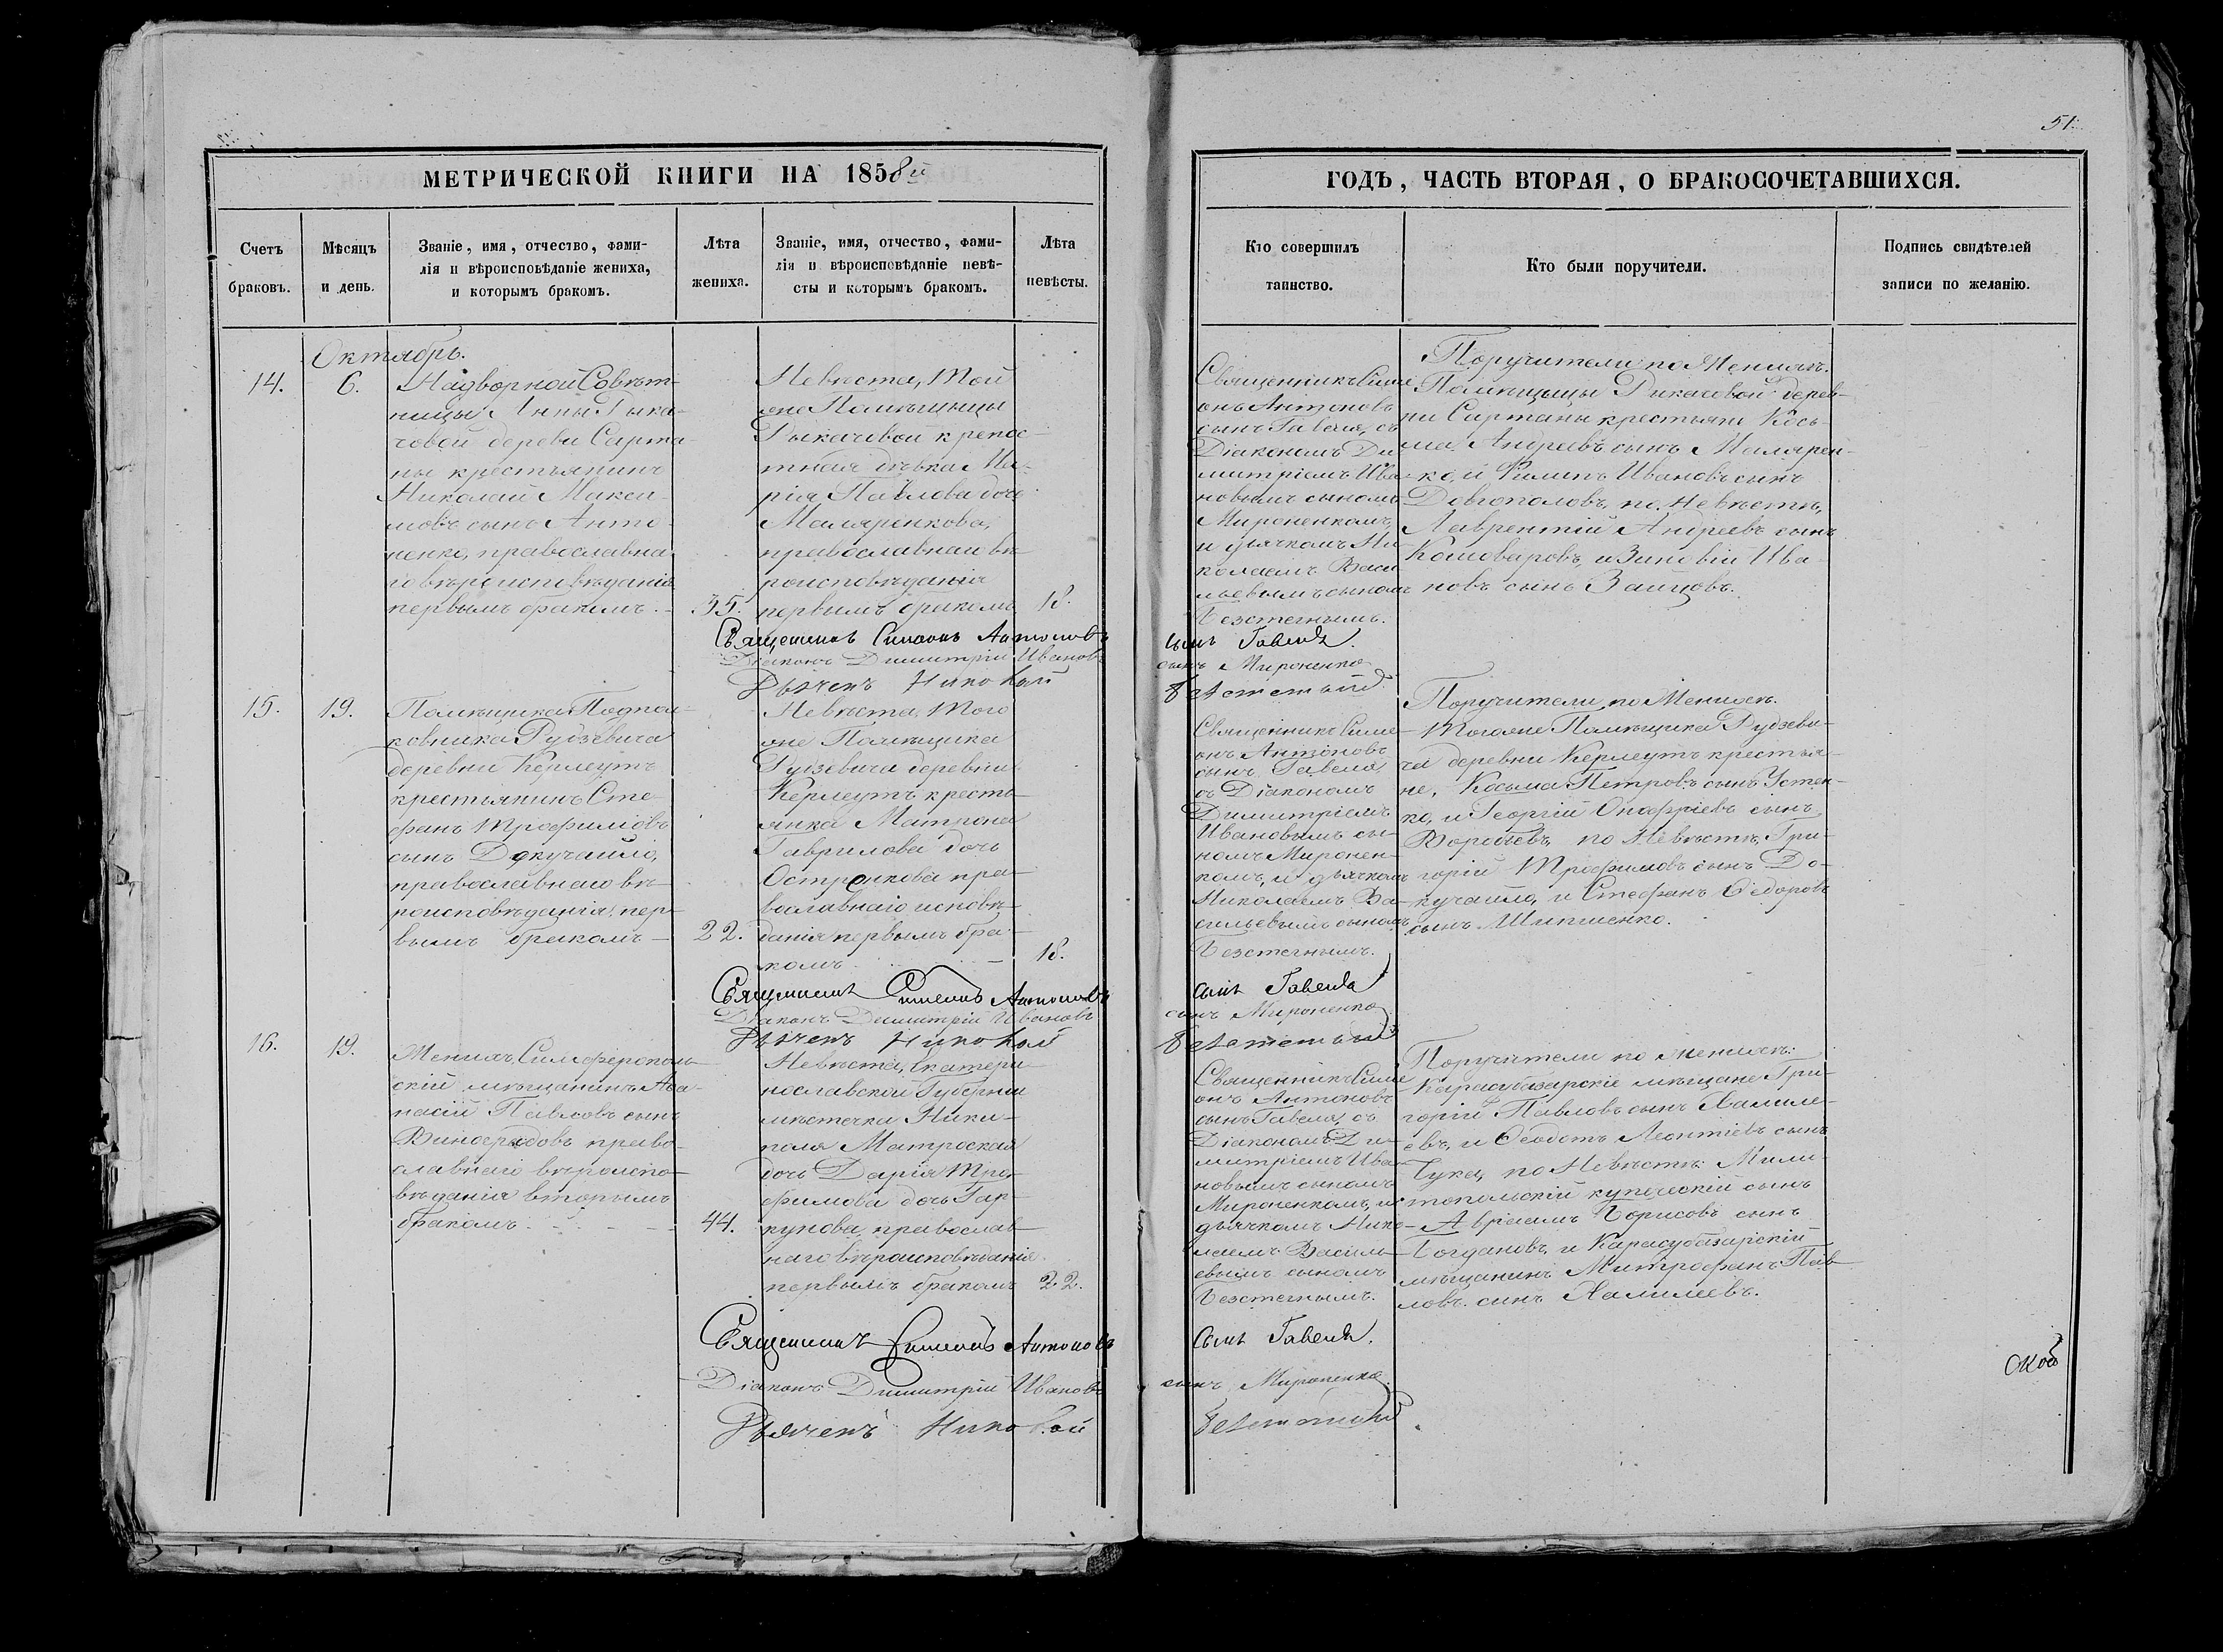 51.
МЕТРИЧЕСКОЙ КНИГИ НА 1858й
ГОДЪ, ЧАСТЬ ВТОРАЯ, О БРАКОСОЧЕТАВШИХСЯ.
Счетъ
браковъ.
Мѣсяцъ
и день.
Званіе, имя, отчество, фами-
лія и вѣроисповѣданіе жениха,
и которымъ бракомъ.
Лѣта
жениха.
Званіе, имя, отчество, фами-
лія и вѣроисповѣданіе невѣ-
сты и которымъ бракомъ.
Лѣта
невѣсты.
Кто совершилъ
таинство.
Кто были поручители.
Подпись свидѣтелей
записи по желанію.
Октябрь.
14.
6.
Надворной Совѣт-
ницы Анны Рыка-
човой деревн Сарта-
ны крестьянинъ
Николай Макси-
мовъ сынъ Анто-
ненко, православна-
го вѣроисповѣданія
первымъ бракомъ.
35.
Невѣста, той
же Помѣщицы
Рыкачевой крепос-
тная дѣвка Ма-
рія Павлова дочь
Маляренкова,
православнаго вѣ-
роисповѣданія
первымъ бракомъ
18.
Священникъ Симе-
онъ Антоновъ
сынъ Гавеля, съ
Діакономъ Ди-
митріемъ Ива-
новымъ сыномъ
Мироненкомъ,
и дьячкомъ Ни-
колаемъ Васи-
льевымъ сыномъ
Безстегнымъ.
Поручители: по Женихѣ:
Помѣщицы Рикасовой дерев-
ни Сартаны крестьяне Кось-
ма Андреевъ сынъ Маляреи-
ко, и Филипъ Ивановъ сынъ
Довгополовъ, по Невѣстѣ,
Лаврентій Андреевъ сынъ
Кошоваровъ, и Зиновій Ива-
новъ сынъ Заицовъ.
Священникъ Симеонъ Антоновъ сынъ Гавеля.
Діаконъ Димитрій Ивановъ сынъ Мироненко
Дьячекъ Николай Безстегный
15.
19.
Помѣщика Подпол-
ковника Рудзевича
деревни Керлеутъ
крестьянинъ Сте-
фанъ Трофимовъ
сынъ Докучайло,
православнаго вѣ-
роисповѣданія, пер-
вымъ бракомъ
22.
Невѣста, того
же Помѣщика
Рудзевича деревни
Керлеутъ кресть-
янка Матрона
Гаврилова дочь
Остронкова пра-
вославнаго исповѣ-
данія первымъ бра-
комъ
18.
Священникъ Симе-
онъ Антоновъ
сынъ Гавеля,
съ Діакономъ
Димитріемъ
Ивановымъ сы-
номъ Миронен-
комъ, и дьячкомъ
Николаемъ Ва-
сильевымъ сыномъ
Безстегнымъ.
Поручители, по Женихѣ.
Тогоже Помѣщика Рудзеви-
ча деревни Керлеутъ крестья-
не, Косьма Петровъ сынъ Устен-
ко, и Георгій Онуфріевъ сынъ
Воробіевъ, по Невѣстѣ, Гри-
горій Трофимовъ сынъ До-
кучайло, и Стефанъ Ѳедоровъ
сынъ Шипшенко.
Священникъ Симеонъ Антоновъ сынъ Гавеля
Діаконъ Димитрій Ивановъ сынъ Мироненко
Дьячекъ Николай Безстегный
16.
19.
Женихъ Симферополь-
скій мѣщанинъ Аѳа-
насій Павловъ сынъ
Виноградовъ право-
славнаго вѣроиспо-
вѣданія вторымъ
бракомъ
44.
Невѣста, Екатери-
нославской Губерніи
мѣстечка Нико-
поля Матроская
дочь Дарія Тро-
фимова дочь Гар-
кунова, православ-
наго вѣроисповѣданія
первымъ бракомъ
22.
Священникъ Симе-
онъ Антоновъ
сынъ Гавеля, съ
Діакономъ Ди-
митріемъ Ива-
новымъ сыномъ
Мироненкомъ, и
дьячкомъ Нико-
лаемъ Василь-
евымъ сыномъ
Безстегнымъ.
Поручители по Женихѣ:
Карасубазарскіе мѣщане Гри-
горій Павловъ сынъ Халиле-
евъ, и Ѳеодотъ Леонтіевъ сынъ
Чука, по Невѣстѣ: Мили-
топольскій купеческій сынъ
Авраамъ Борисовъ сынъ
Богдановъ, и Карасубазарскій
мѣщанинъ Митрофанъ Пав-
ловъ сынъ Халилеевъ.
Священникъ Симеонъ Антоновъ сынъ Гавеля.
Діаконъ Димитрій Ивановъ сынъ Мироненко.
Дьячекъ Николай Безстегный